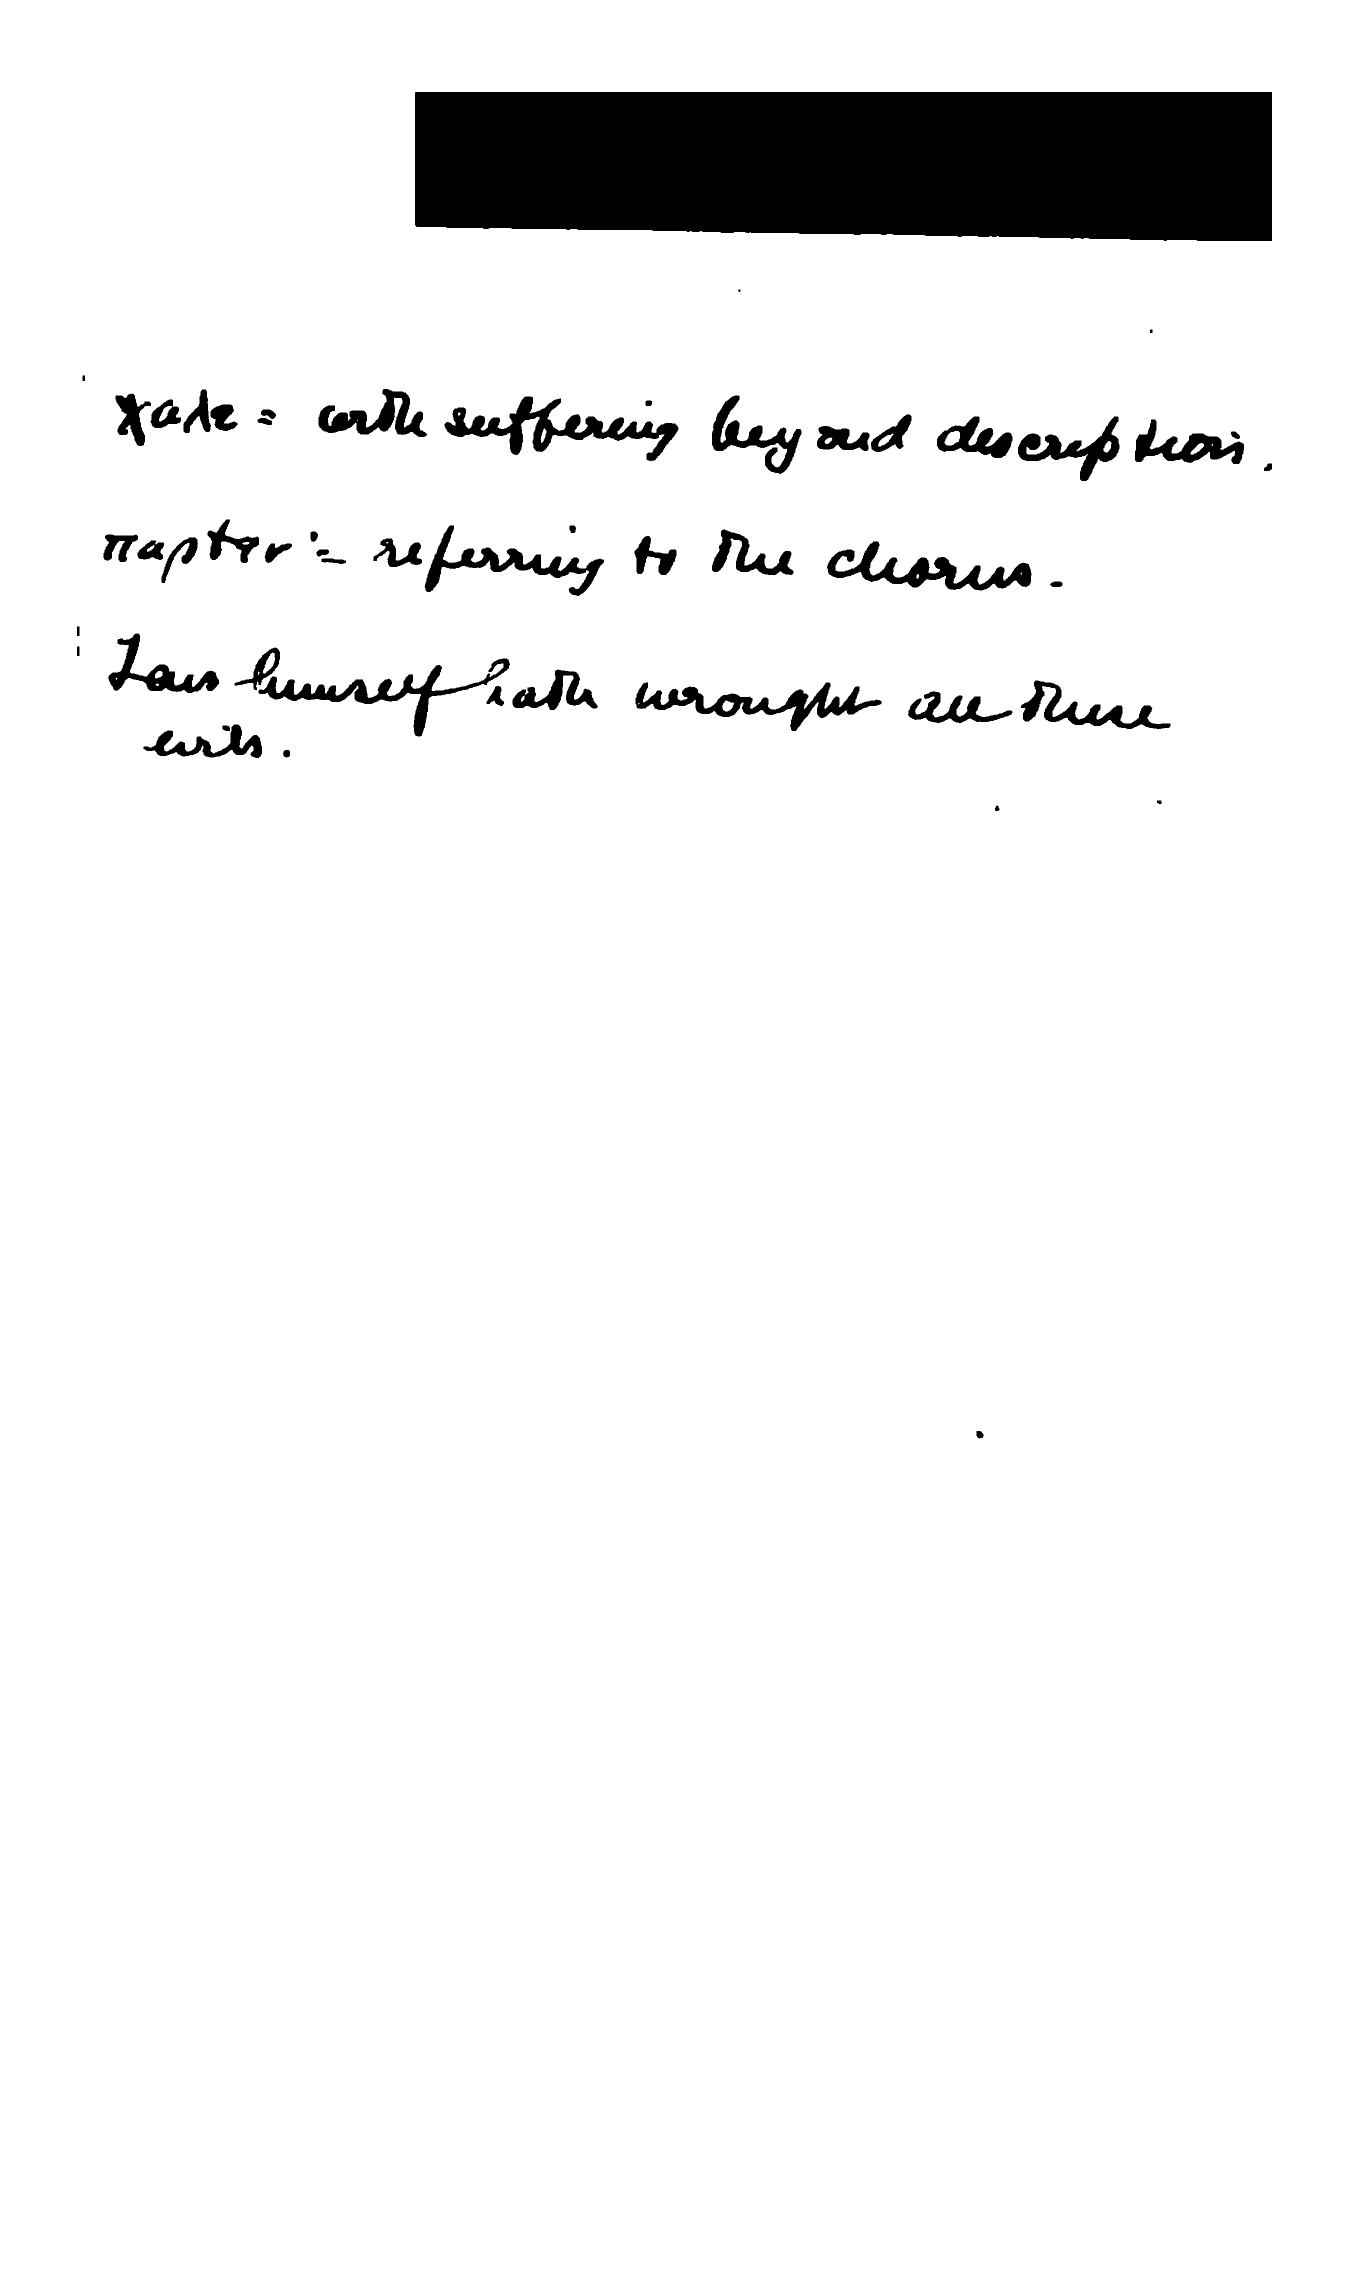 χαλε = with suffering beyond description.
παρτον = referring to the chorus.
himself hath wrought all these
evils.